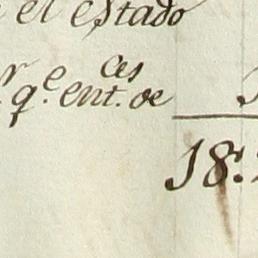 el estado
q.e ent.ces de
18: